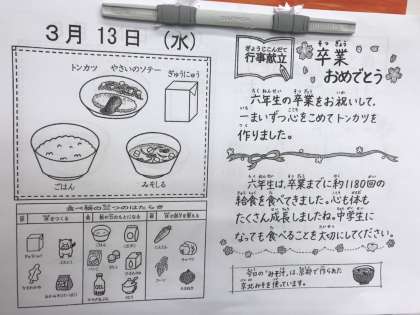 3月13日(水)
トンカツ やさいのソテー
ぎゅうにゅう
ごはん
みそしる
食べ物の三つのはたらき
ぎょうじこんだて
行事献立
そつぎょう
卒業
おめでとう
六年生の卒業をお祝いして、
一まいずつ心をこめてトンカツを
作りました。
六年生は、卒業までに約1180回の
給食を食べてきました。心も体も
たくさん成長しましたね。中学生に
なっても食べることを大切にしてください。
今日の「みそ汁」は、京都で作られた
京北みそを使っています。